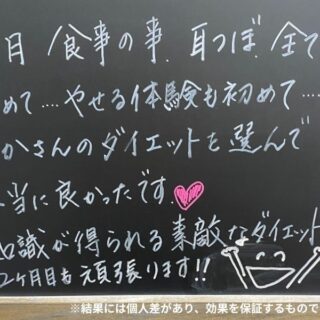 月 食事の事、耳つぼ、全て
めて…やせる体験も初めて…
かさんのダイエットを選んで
当に良かったです♥
知識が得られる素敵なダイエット
2ヶ月目も頑張ります!!
※結果には個人差があり、効果を保証するもので